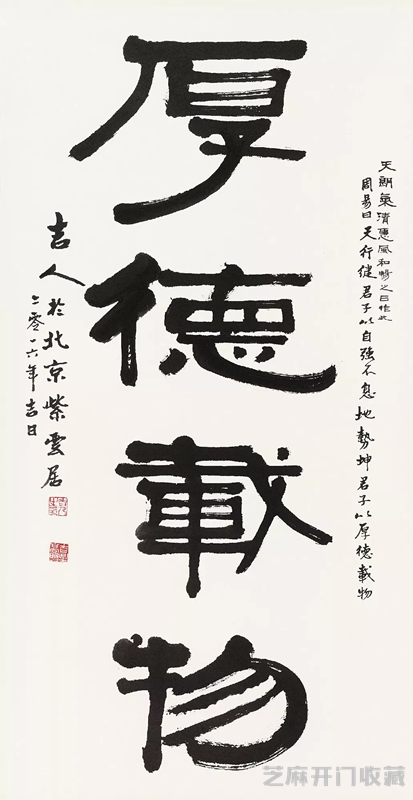 天朗氣清惠風和暢之日作此
周易曰天行健君子以自強不息地勢坤君子以厚德載物
厚德載物
吉人於北京紫雲居
二零一六年吉日
芝麻开门收藏